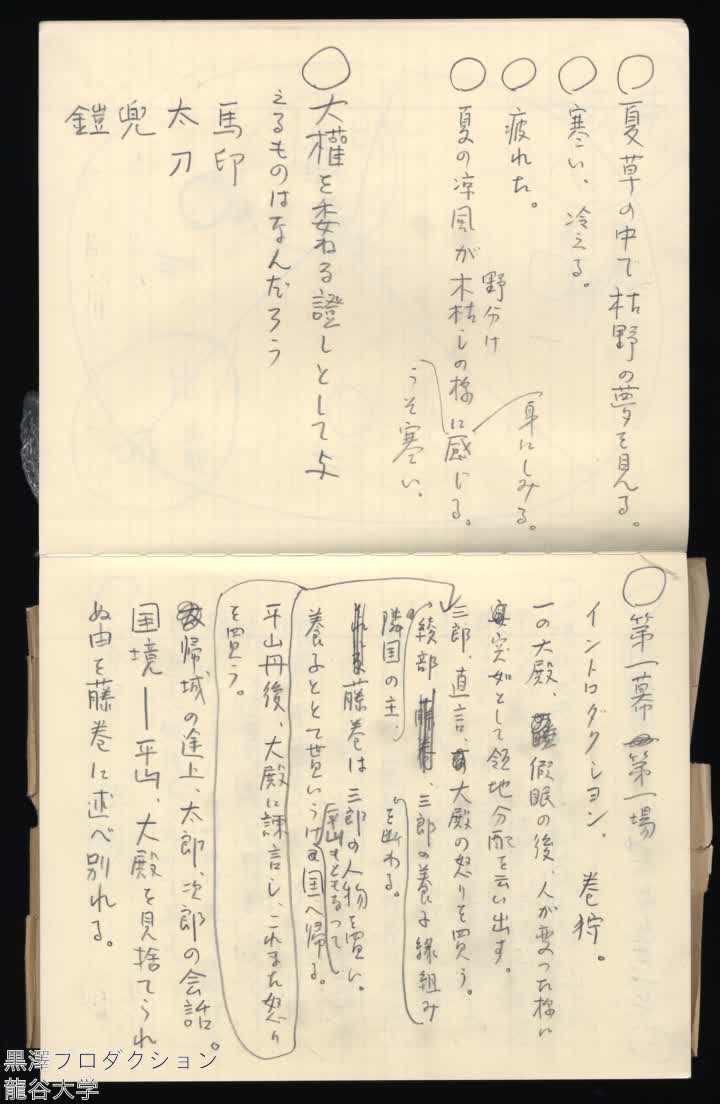 ○夏草の中で枯野の夢を見る。
○寒い、冷える。
○疲れた。
○夏の涼風が木枯しの様に感じる。
野分け
身にしみる。
うそ寒い。
○大權を委ねる證しとして与
えるものはなんだろう
馬印
太刀
兜
鎧
○第一幕 第一場
イントロダクション。 巻狩。
一の大殿、假眠の後、人が変った様に
突如として領地分配を云い出す。
三郎、直言、大殿の怒りを買う。
綾部、三郎の養子縁組み
を断わる。
隣国の主、
藤巻は三郎の人物を買い、
養子として貰いうけ国へ帰る。
平山もともなって
平山丹後、大殿に諌言し、これまた怒り
を買う。
帰城の途上、太郎、次郎の会話。
国境―平山、大殿を見捨てられ
ぬ由を藤巻に述べ別れる。
黒澤プロダクション
龍谷大学